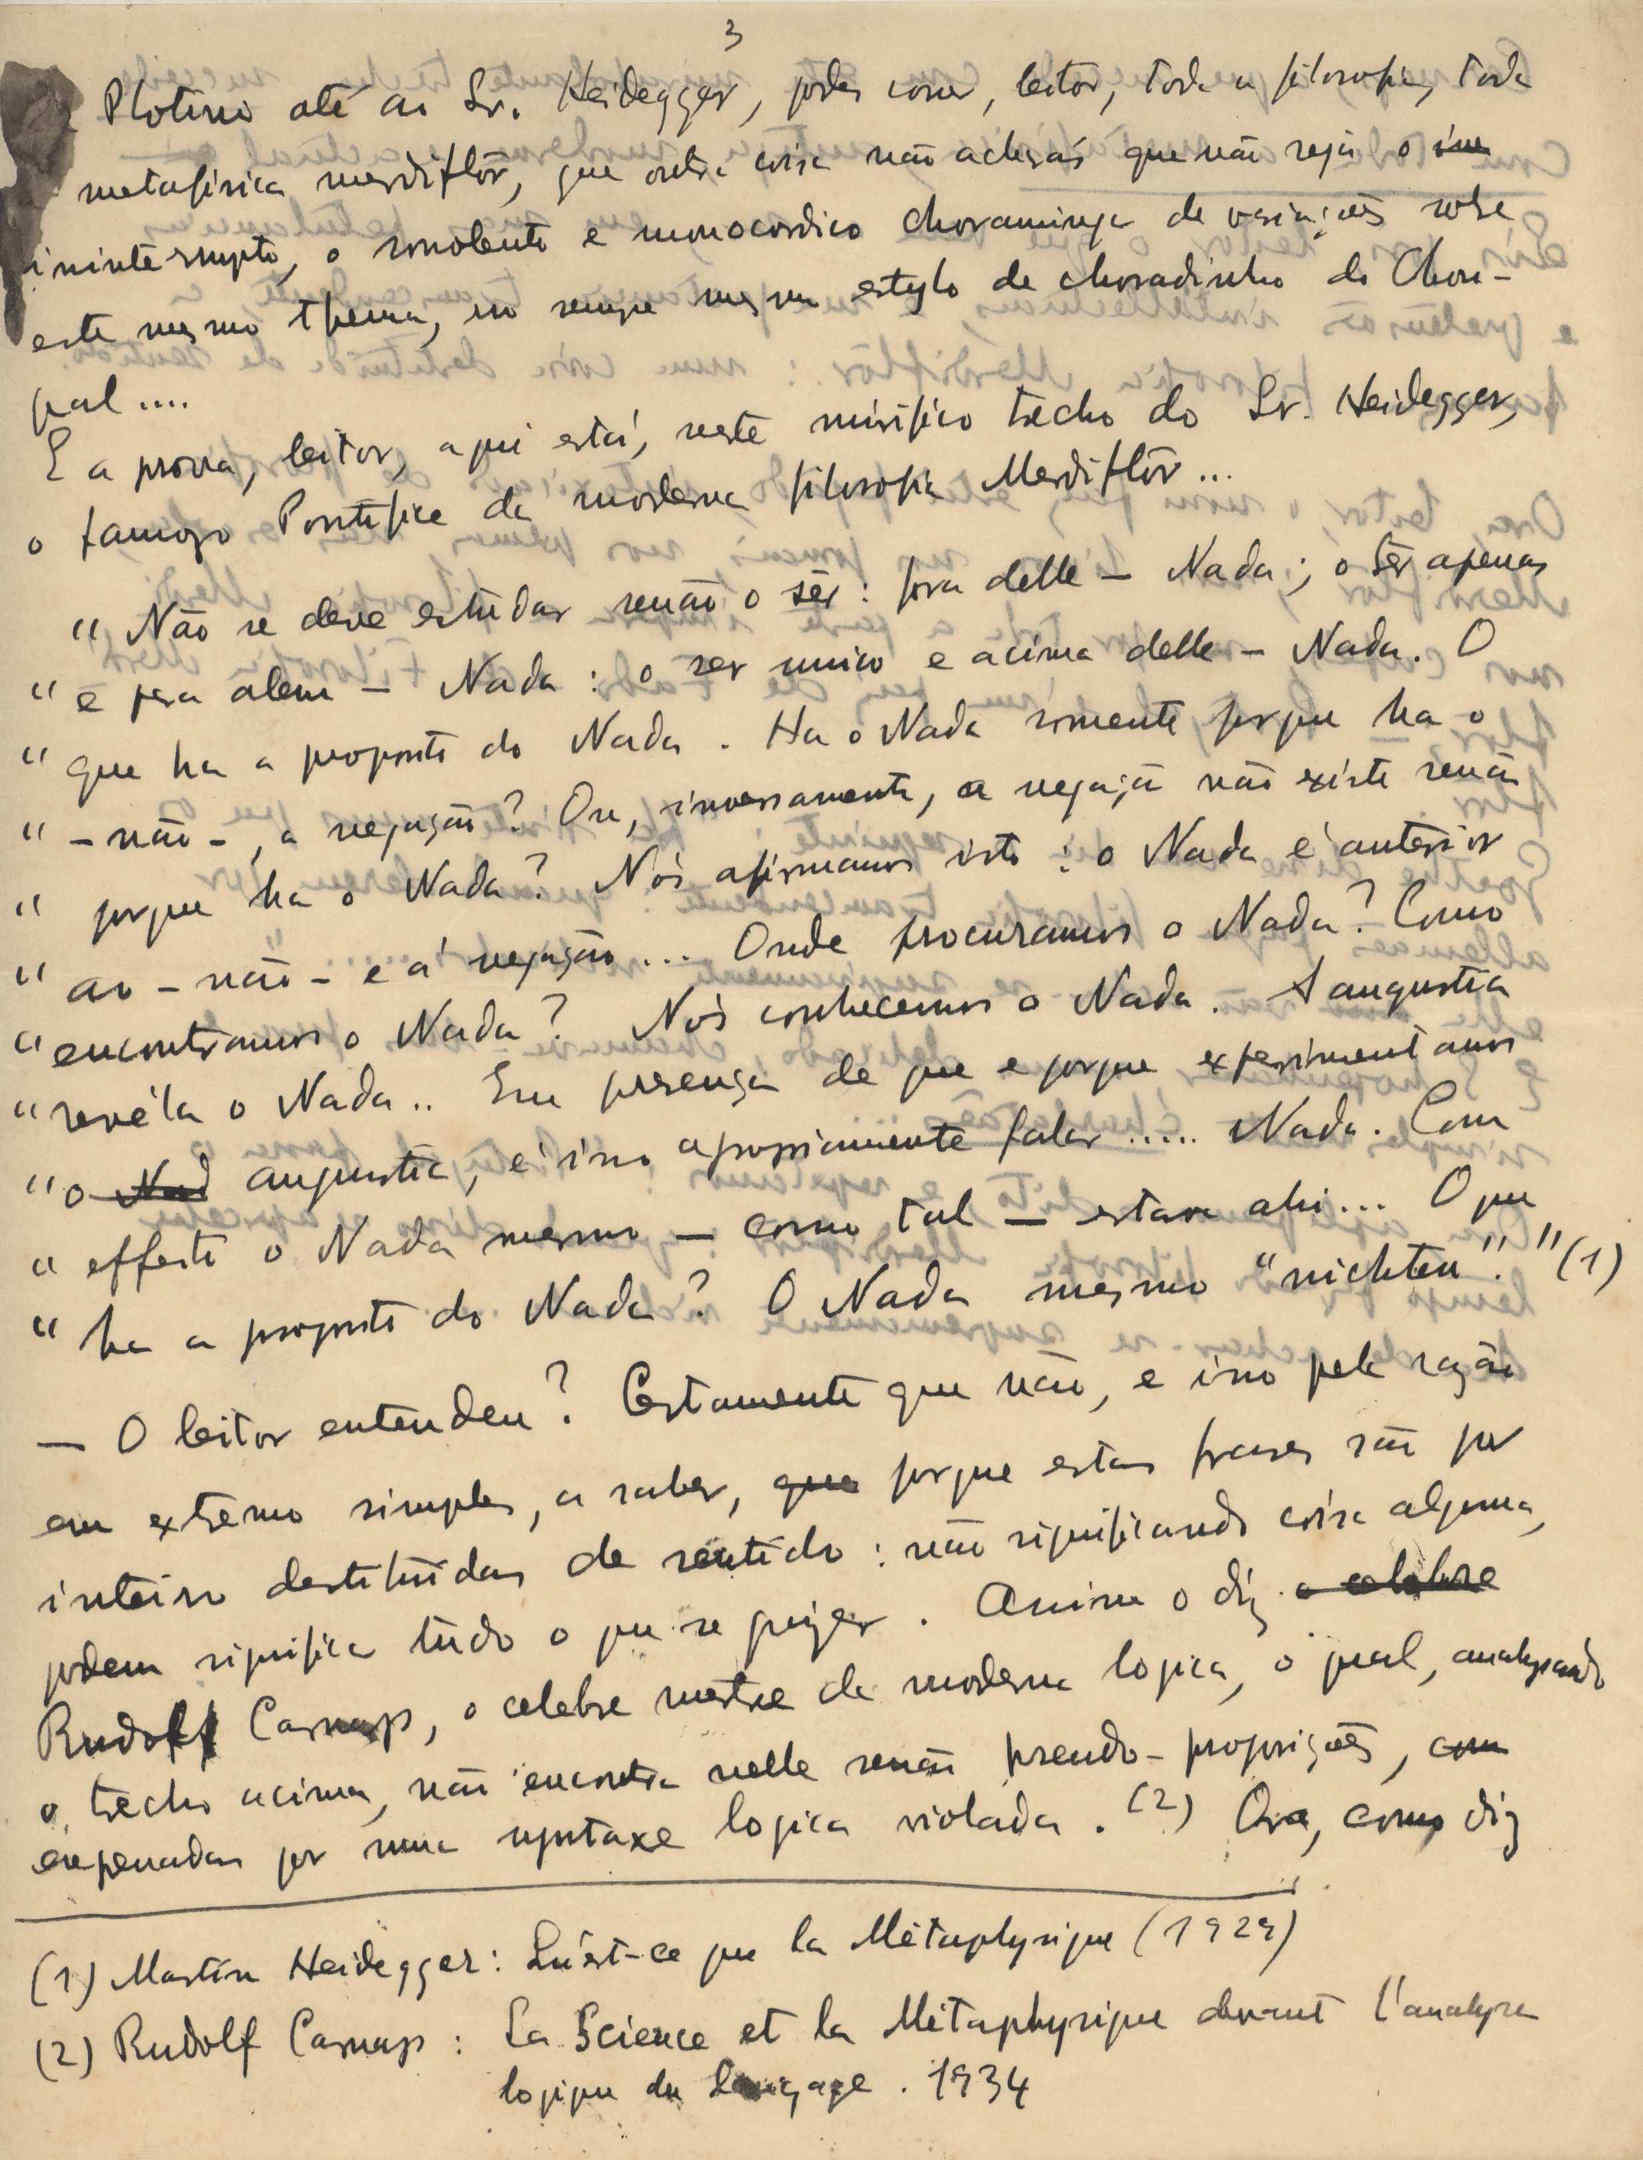 3
Plotino até ao Sr. Heidegger, podes correr, leitor, toda a filosofia, toda
metafisica merdiflôr, que outra coisa não acharás que não seja o
ininterrupto, o sonolento e monocordico choraminga de variações sobre
este mesmo thema, no sempre mesmo estylo de choradinho do Chou-
pal....
E a prova, leitor, aqui está, neste mirifico trecho do Sr. Heidegger,
o famozo Pontifice da moderna filosofia Merdiflôr...
" Não se deve estudar senão o sêr: fora delle – Nada; o sêr apenas
" e para alem – Nada: o ser unico e acima delle – Nada. O
" que ha a proposito do Nada. Ha o Nada somente porque ha o
" – não –, a negação? Ou, inversamente, a negação não existe senão
" porque ha o Nada? Nós afirmamos isto: o Nada é anterior
" ao – não – e á negação... Onde procuramos o Nada? Como
" encontramos o Nada? Nós conhecemos o Nada. A angustia
" revéla o Nada.. Em presença de que e porque experimentamos
" o Nad angustia, é isso apropriamente falar ..... Nada. Com
" effeito o Nada mesmo – como tal – estava ahi... O que
" ha a proposito do Nada? O Nada mesmo "nichten"." (1)
– O leitor entendeu? Certamente que não, e isso pela razão
em extremo simples, a saber, que porque estas frases são por
inteiro destituidas de sentido: não significando coisa alguma,
podem significa tudo o que se quizer. Assim o diz o celebre
Rudolf Carnap, o celebre mestre da moderna logica, o qual, analysando
o trecho acima, não encontra nelle senão pseudo-proposições, com
por uma syntaxe logica violada. (2) Ora, como diz
(1) Martin Heidegger: Qu'est-ce que la Métaphysique (1929)
(2) Rudolf Carnap: La Science et la Métaphysique devant l'analyse
logique du Langage. 1934